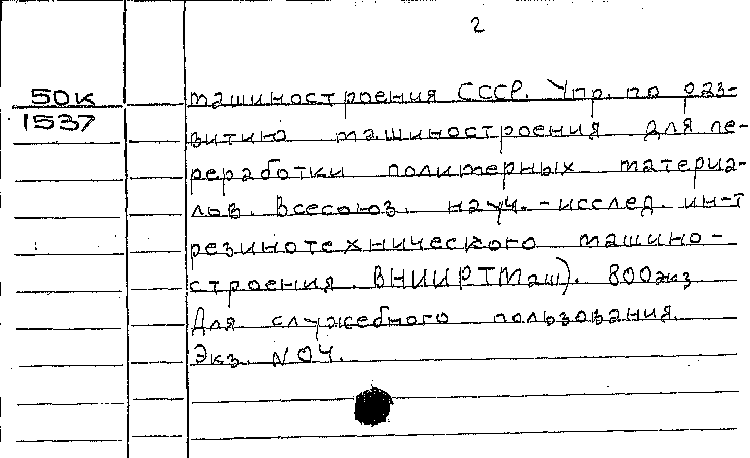 2
50К
1537
машиностроения СССР. Упр. по раз-
витию машиностроения для пе-
реработки полимерных материа-
лов. Всесоюз. науч.-исслед. ин-т
резинотехнического машино-
строения. ВНИИРТМаш). 800экз
Для служебного пользования.
Экз. №04.